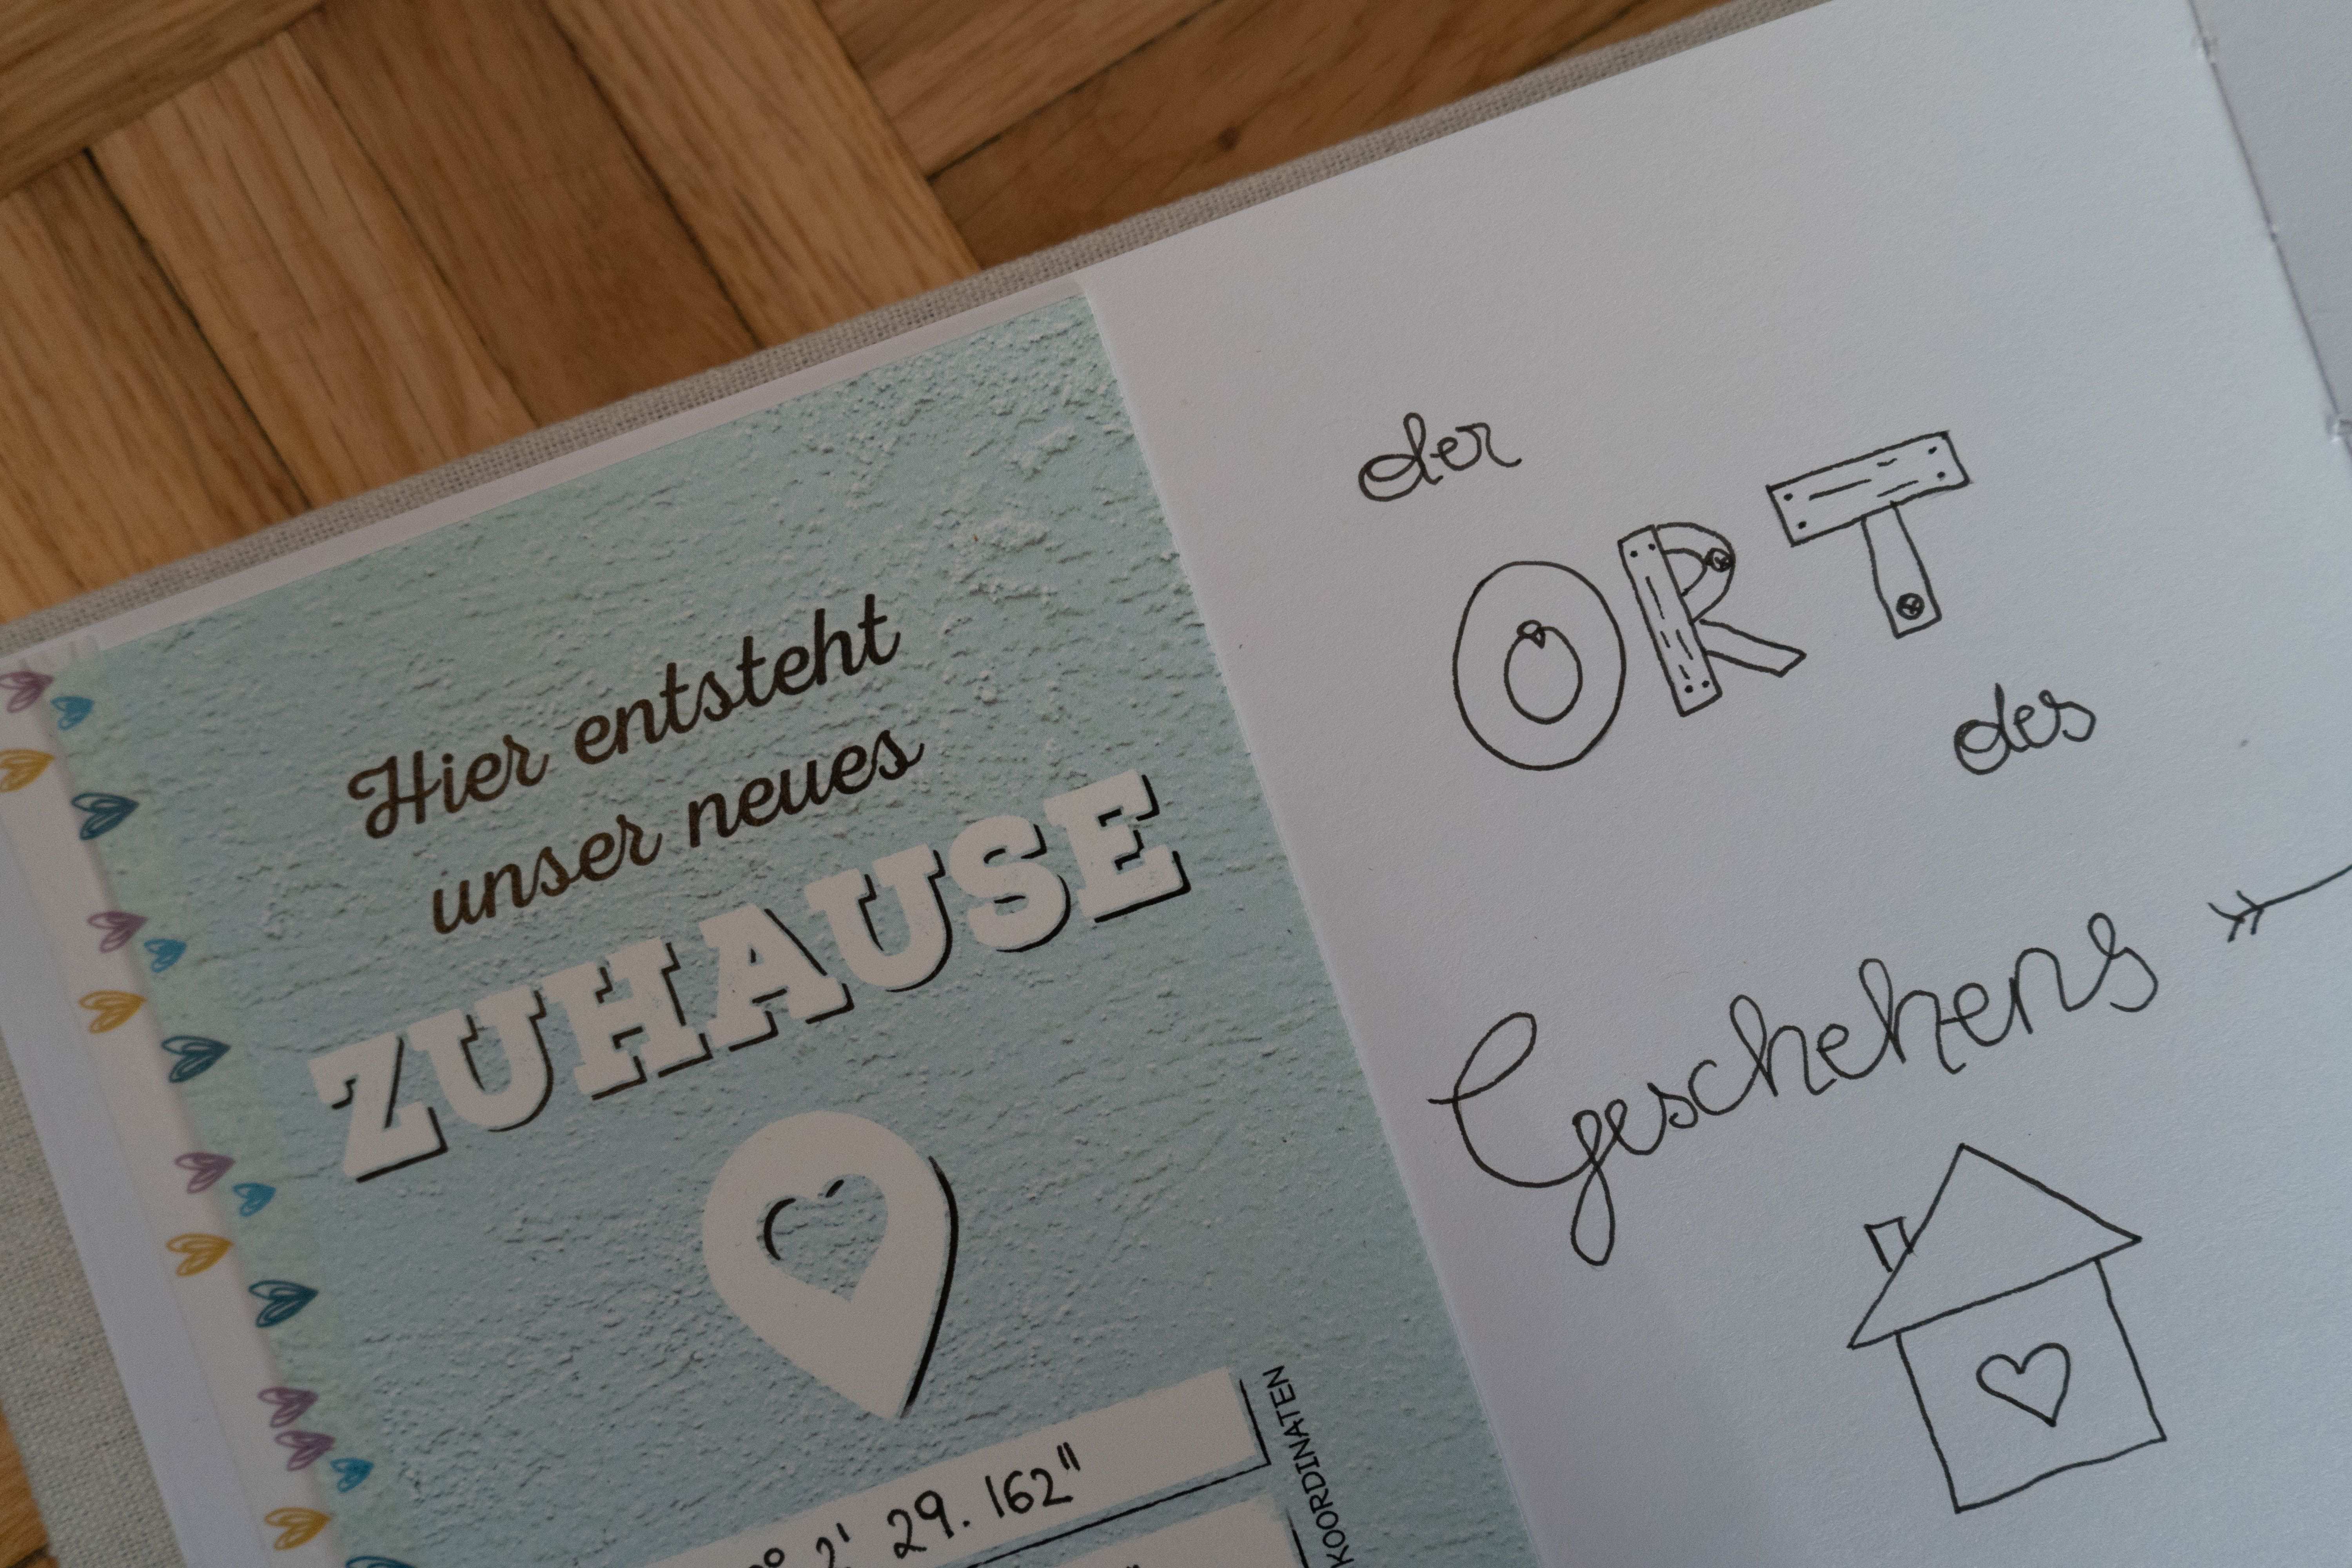 Hier entsteht
unser neues
ZUHAUSE
2' 29.162"
KOORDINATEN
der
ORT
des
Geschehens